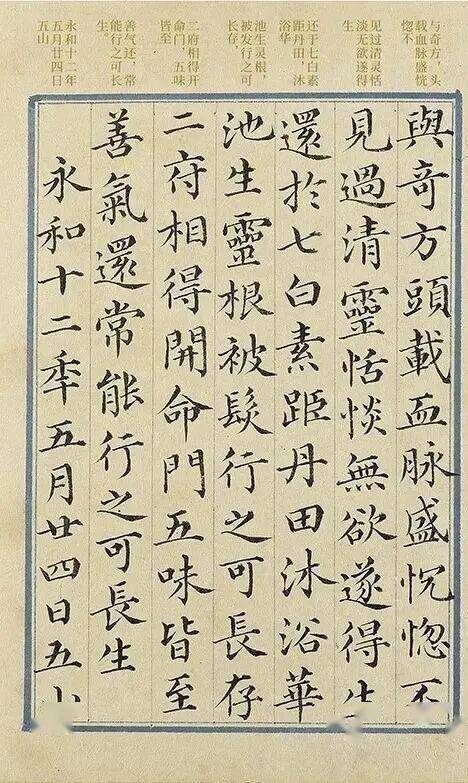 与奇方，头
载血脉盛恍
惚不
见过清灵恬
淡无欲遂得
生
还于七白素
距丹田，沐
浴华
池生灵根，
被发行之可
长存。
二府相得开
命门，五味
皆至
善气还，常
能行之可长
生。
永和十二年
五月廿四日
五山
與奇方頭載血脉盛恍惚不
見過清靈恬惔無欲遂得生
還於七白素距丹田沐浴華
池生靈根被髮行之可長存
二府相得開命門五味皆至
善氣還常能行之可長生
永和十二年五月廿四日五山